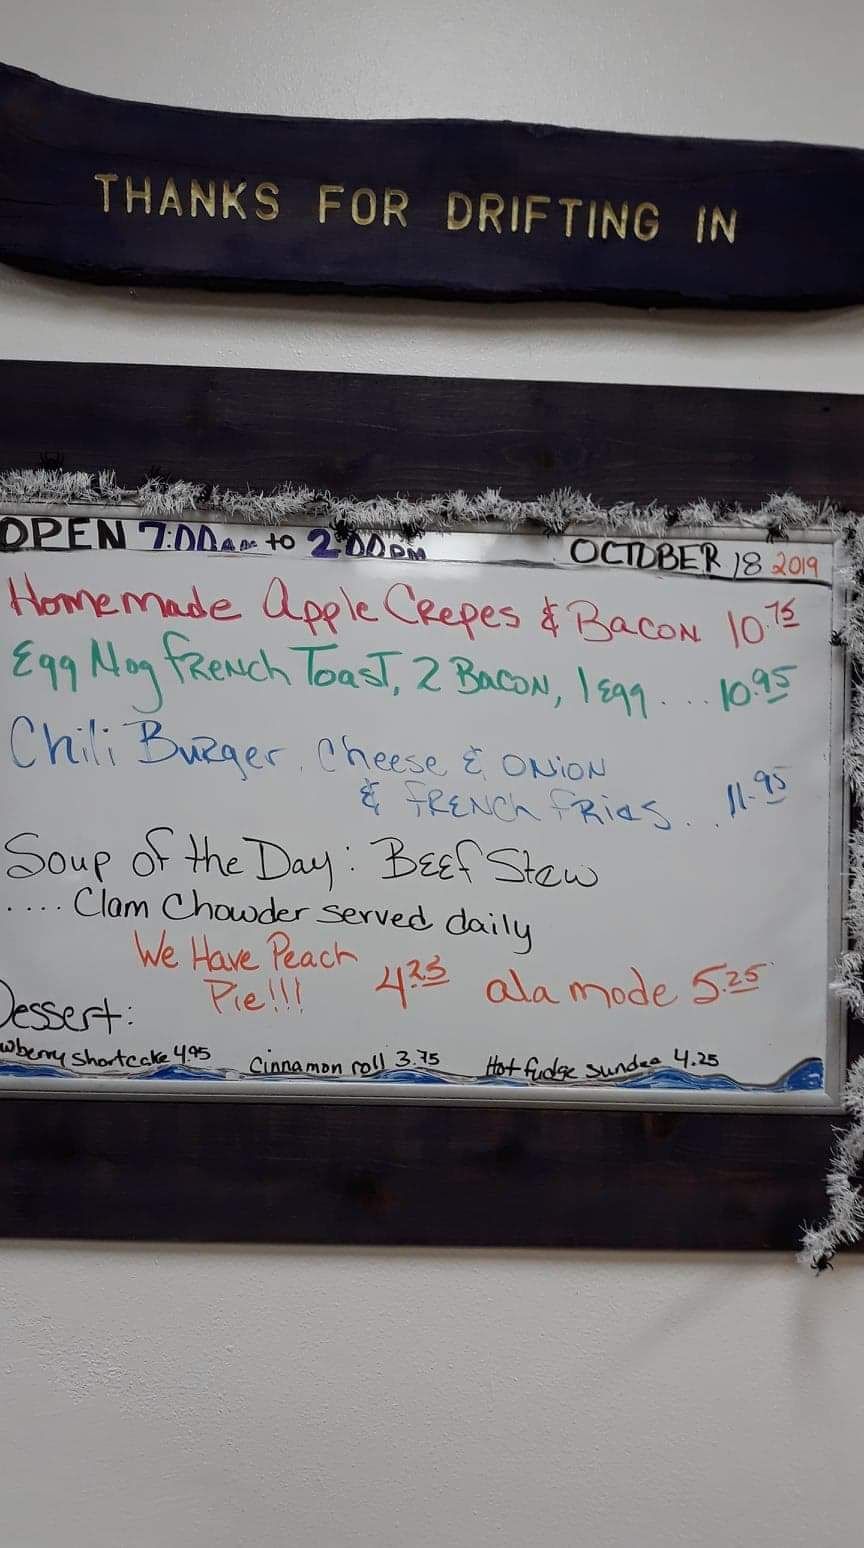 THANKS FOR DRIFTING IN
OPEN 7:00AM to 2:00PM OCTOBER 18 2019
Homemade Apple Crepes & Bacon 10.75
Egg Nog French Toast, 2 Bacon, 1 Egg.... 10.95
Chili Burger, Cheese & Onion
& French Fries... 11.95
Soup of the Day: Beef Stew
.... Clam Chowder served daily
We Have Peach
Pie!!! 4.25 ala mode 5.25
Dessert:
wberry shortcake 4.95 Cinnamon roll 3.75 Hot fudge sundae 4.25